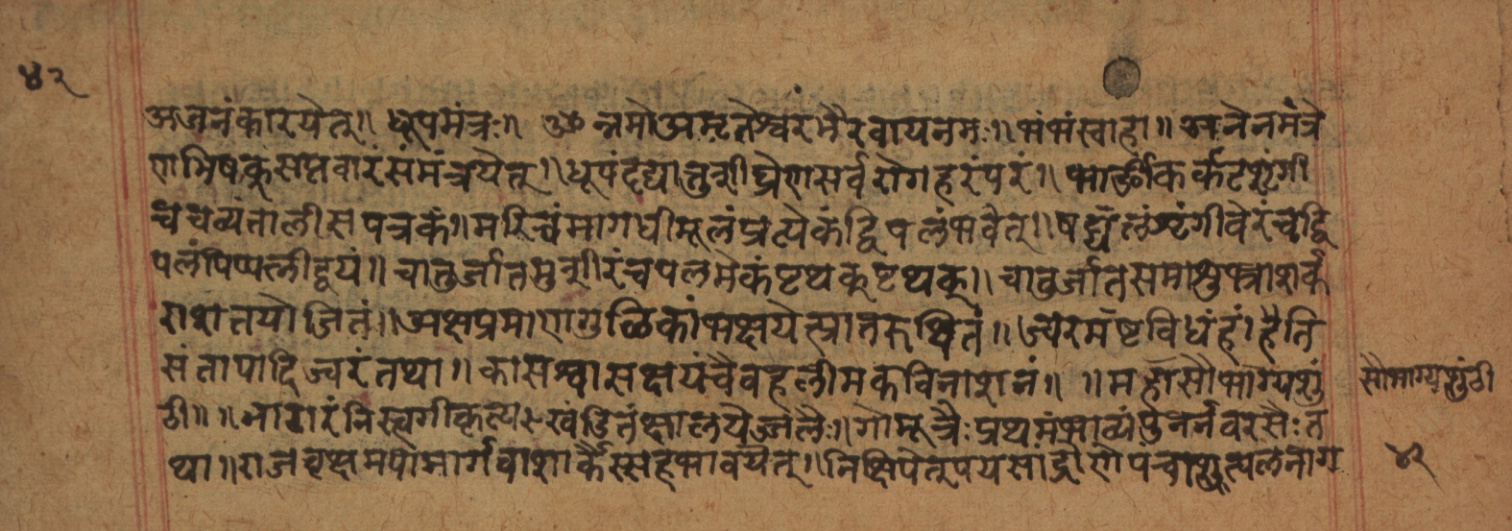 ४२
अंजनं कारयेत् ॥ धूपमंत्रः ॥ ॐ नमो अमृतेश्वरंभैरवाय नमः ॥ भं भं स्वाहा ॥ अनेन मंत्रे
णाभिषक् सप्तवारं संमंत्रयेत् ॥ धूपं दद्यात्तु शीघ्रेण सर्वरोगहरं परं ॥ भार्ङीकर्कटशृंगी
च चव्यं तालीसपत्रकं ॥ मरिचं मागधीमूलं प्रत्येकं द्विपलं भवेत् ॥ षट्पलं शृंगीवेरं च द्वि
पलं पिप्पलीद्वयं ॥ चातुर्जातमुशीरं च पलमेकं पृथक् पृथक् ॥ चातुर्जातसमा शुभ्रा शर्क
रा शतयोजितं ॥ अक्षप्रमाणगुळिकां भक्षयेत्प्रातरुत्थितं ॥ ज्वरमष्टविधं हंति
संतापादिज्वरं तथा ॥ कासश्वासक्षयं चैव हलीमकविनाशनं ॥ ॥ महासौभाग्यशुं
ठी ॥ ॥ नागरं निस्त्वगीकृत्य खंडितं क्षालयेज्जलैः ॥ गोमूत्रैः प्रथमं भाव्यं पुनर्नवरसैः त
था ॥ राजवृक्षमपामार्गवाशार्कैस्सह भावयेत् ॥ निक्षिपेत् पयसा द्रोणे पंचाशत्पलनाग
सौभाग्यशुंठी
४२